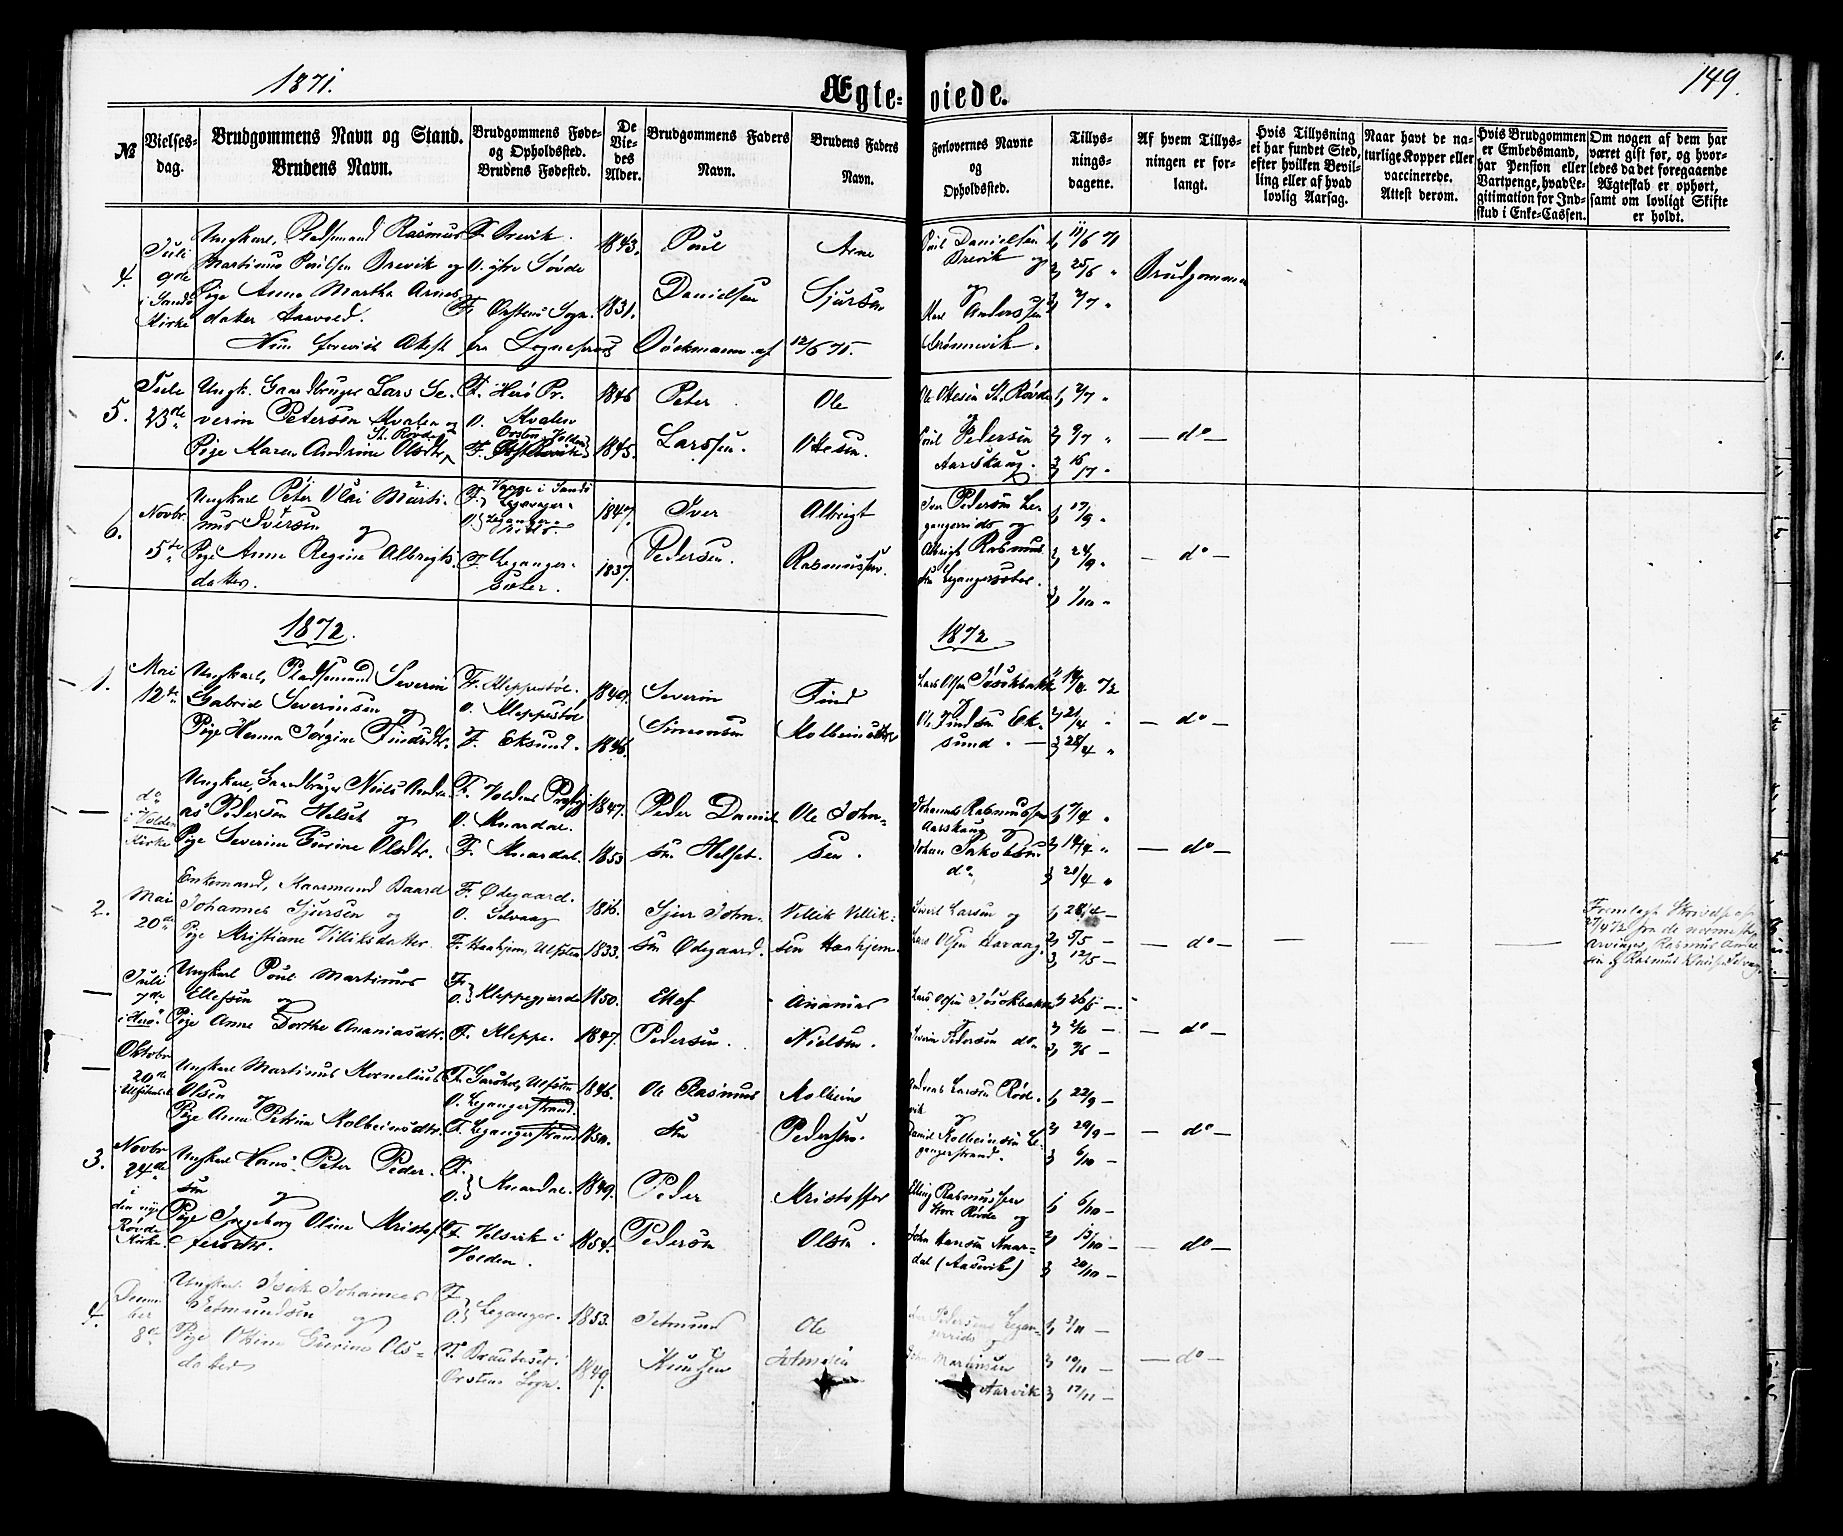 1871.
Ægte=
viede.
149.
№
Vielses-
dag.
Brudgommens Navn og Stand.
Brudens Navn.
Brudgommens Føde-
og Opholdssted.
Brudens Fødested.
De
Vie-
des
Alder.
Brudgommens Faders
Navn.
Brudens Faders
Navn.
Forlovernes Navne
og
Opholdssted.
Tillys-
nings-
dagene.
Af hvem Tillys-
ningen er for-
langt.
Hvis Tillysning
ei har fundet Sted,
efter hvilken Bevil-
ling eller af hvad
lovlig Aarsag.
Naar havt de na-
turlige Kopper eller
vaccinerede.
Attest derom.
Hvis Brudgommen
er Embedsmand,
har Pension eller
Vartpenge, hvad Le-
gitimation for Ind-
skud i Enke-Cassen.
Om nogen af dem har
været gift før, og hvor-
ledes da det foregaaende
Ægteskab er ophørt,
samt om lovligt Skifte
er holdt.
4.
Juli
9de
i Sandø
Kirke
Ungkarl, Pladsemand Rasmus
Martinus Poulsen Brevik og
Pige Anne Martha Arnes
datter Aarvold.
F. Brevik.
O. ytre Søvde
F. Ørstens Sogn.
1843.
1831.
Poul
Danielsen
Arne
Sjursen
Poul Danielsen
Brevik og
Anderssen
Grønnevik.
1) 11/6 71
2) 25/6 "
3) 2/7 "
Brudgommen
Hun forevist Attest fra Sognepræst Bøckmann af 12/6 71.
5.
Juli
23de
Ungk. Gaardbruger Lars Se-
verin Petersen Kvalen og
Pige Maren Andrine Olsdtr.
St. Røvde
F. Herø Pr.
O. Kvalen
1846
1845.
Peter
Larssen.
Ole
Ottesen.
Ole Ottesen St. Røvde
og
Poul Pedersen
Aarskaug.
1) 2/7 "
2) 9/7 "
3) 16/7 "
— do —
6.
Novbr.
5te
Ungkarl Peter Olai Marti-
nus Iversen og
Pige Anne Regine Albregts-
datter.
F. Leganger-
sæter.
1847.
1837.
Iver
Pedersen.
Albrigt
Rasmussen.
Iver Pedersen Le-
gangereide og
Albrigt Rasmus-
sen Legangersæter.
1) 17/9 "
2) 24/9 "
3) 1/10 "
— do —
1872.
1872
1.
Mai
12te
Ungkarl, Pladsemand Severin
Gabriel Severinsen og
Pige Hanna Jørgine Findsdtr.
F. Kleppestøl.
O. Kleppestøl
F. Eksund.
1840.
1846.
Severin
Simonsen
Find
Kolbeinsen
Lars Olsen
og
Ole Findsen Ek-
sund. —
1) 14/4 72
2) 21/4 "
3) 28/4 "
— do —
do
i Volden
Kirke
Ungkarl, Gaardbruger Nils Andre-
as Pedersen Helset og
Pige Severine Gurine Olsdtr.
O. Knardal.
F. Knardal.
1847.
1853
Peder Daniel-
sen Helset.
Ole John-
sen.
Johannes Rasmussen
Aarskaug og
Johan Jakobsen
do
1) 7/4 "
2) 14/4 "
3) 21/4 "
— do —
2.
Mai
20de
Enkemand, Kaarmand Baard
Johannes Sjursen og
Pige Kristiane Villiksdatter.
F. Ødegaard.
O. Selvaag
F. Haahjem, Ulfsten
1816.
1833.
Sjur John-
sen Ødegaard.
Villik Villik-
sen Haahjem.
Sivert Larsen og
Lars Olsen Havaag.
1) 28/4 —
2) 5/5 —
3) 12/5 —
— do —
27/4 72 fra de nærmeste
Arvinger, Rasmus
Juli
7de
i Herø.
Ungkarl Poul Martinus
Ellefsen og
Pige Anne Dorthe Ananiasdtr.
F.
O. } Kleppegjærde
F. Kleppe.
1850.
1847.
Ellef
Pedersen.
Ananias
Nielsen.
Lars Olsen
og
Severin Pedersen do
1) 26/5 —
2) 2/6 —
3) 9/6 —
— do —
Oktober
20de
Ungkarl Martinus Kornelius
Olsen og
Pige Anne Petrine Kolbeinsdtr.
O. Legangerstrand.
F. Legangerstrand
1846.
1850.
Ole Rasmus-
sen
Kolbein
Pedersen.
Andreas Larsen Rød-
vik
og
Daniel Kolbeinsen Le-
gangerstrand.
1) 22/9 —
2) 29/9 —
3) 6/10 —
— do —
3.
Novbr
24de
i
den nye
Røvde
Kirke.
Ungkarl Hans Peter Peder-
sen og
Pige Ingeborg Oline Kristof-
fersdtr.
F.
O. } Knardal.
F. Velsvik i
Volden.
1849.
1854.
Peder
Pedersen
Kristoffer
Olsen.
Elling Rasmussen
Store Røvde og
John Hansen Knar-
dal (Aasevik)
1) 6/10 —
2) 13/10 —
3) 20/10 —
— do —
4.
Decem-
ber
8de
Ungkarl Isak Johannes
og
Pige Oline Gurine Ols-
datter
F.
O. } Leganger.
Ørstens Sogn.
1853.
1849.
Knudsen
Ole
Iver Pedersen Legan-
gereide og
John Martinsen
Aarvik
1) 3/11 —
2) 10/11 —
3) 17/11 —
— do —